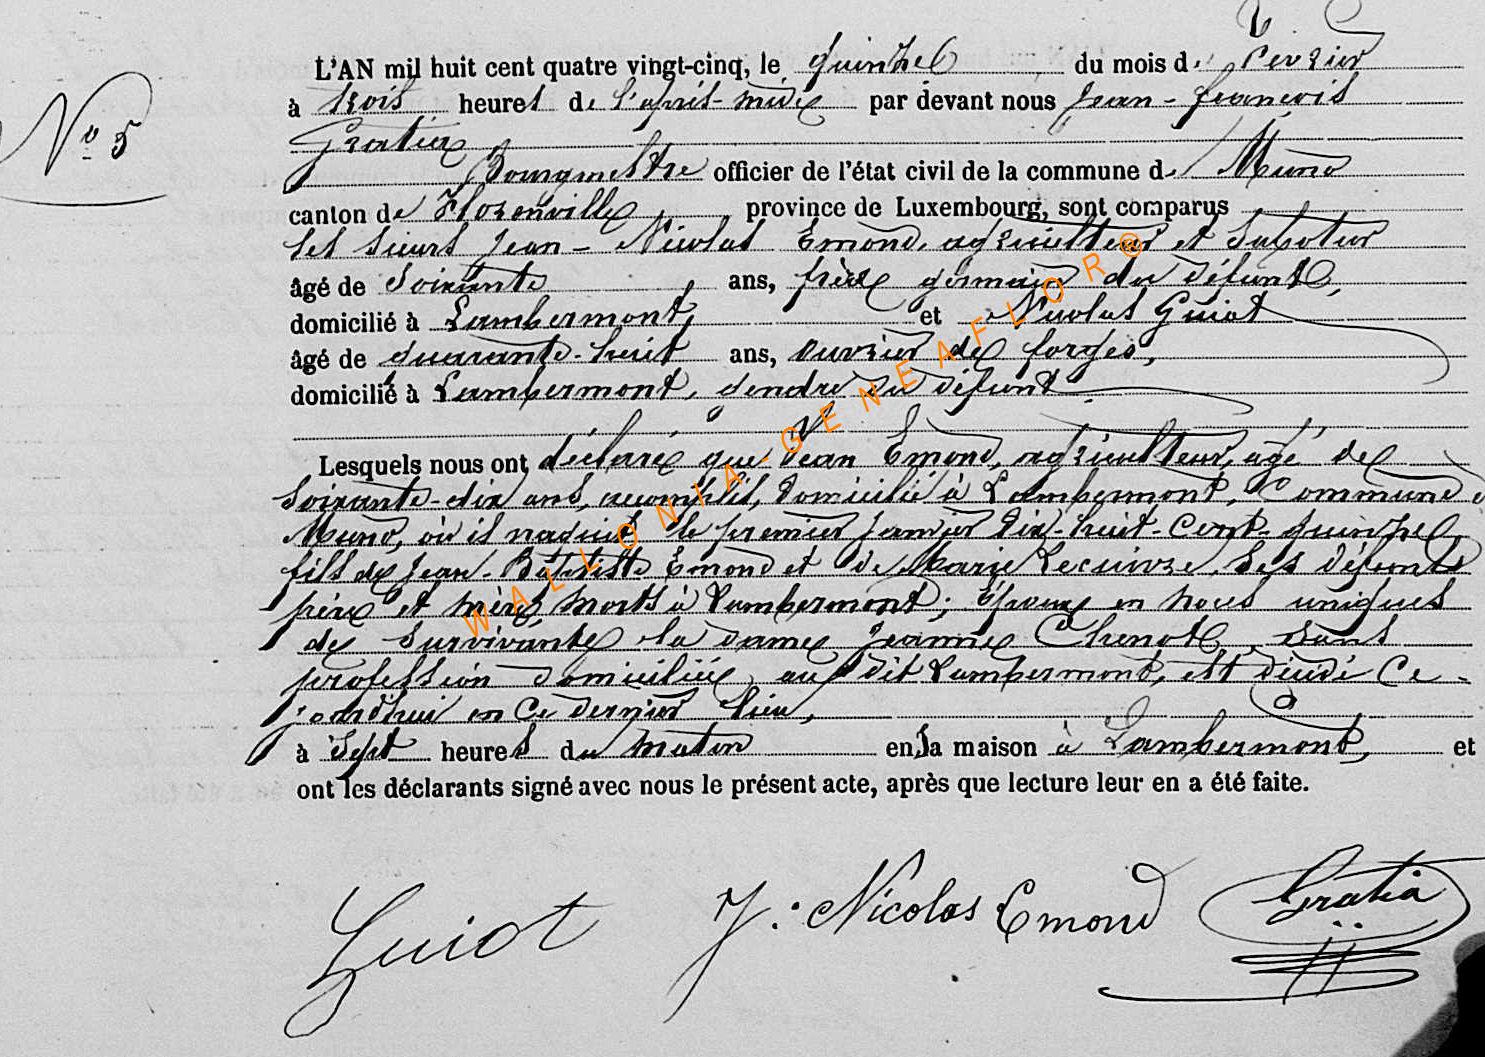 L'AN mil huit cent quatre vingt-cinq, le quinze du mois de Février
No 5
à trois heures de l'après-midi par devant nous Jean-François
Gratia
Bourgmestre officier de l'état civil de la commune de Muno
canton de Florenville province de Luxembourg, sont comparus
les sieurs Jean-Nicolas Emond, agriculteur et sabotier
âgé de soixante ans, frère germain du défunt,
domicilié à Lambermont, et Nicolas Guiot
âgé de quarante-huit ans, ouvrier de forges,
domicilié à Lambermont, gendre du défunt
Lesquels nous ont déclaré que Jean Emond, agriculteur, âgé de
soixante-dix ans, accomplis, domicilié à Lambermont, Commune de
Muno, où il naquit le premier janvier dix-huit-cent-quinze,
fils de Jean-Baptiste Emond et de Marie Lecuivre, ses défunts
père et mère, morts à Lambermont; Epoux en noces uniques
de survivante la dame Jeanne Chenot, sans
profession domiciliée au dit Lambermont, est décédé ce-
jourd'hui en ce dernier lieu,
à sept heures du matin en sa maison à Lambermont, et
ont les déclarants signé avec nous le présent acte, après que lecture leur en a été faite.
Guiot J. Nicolas Emond Gratia
WALLONIA-GENEAFLOR®